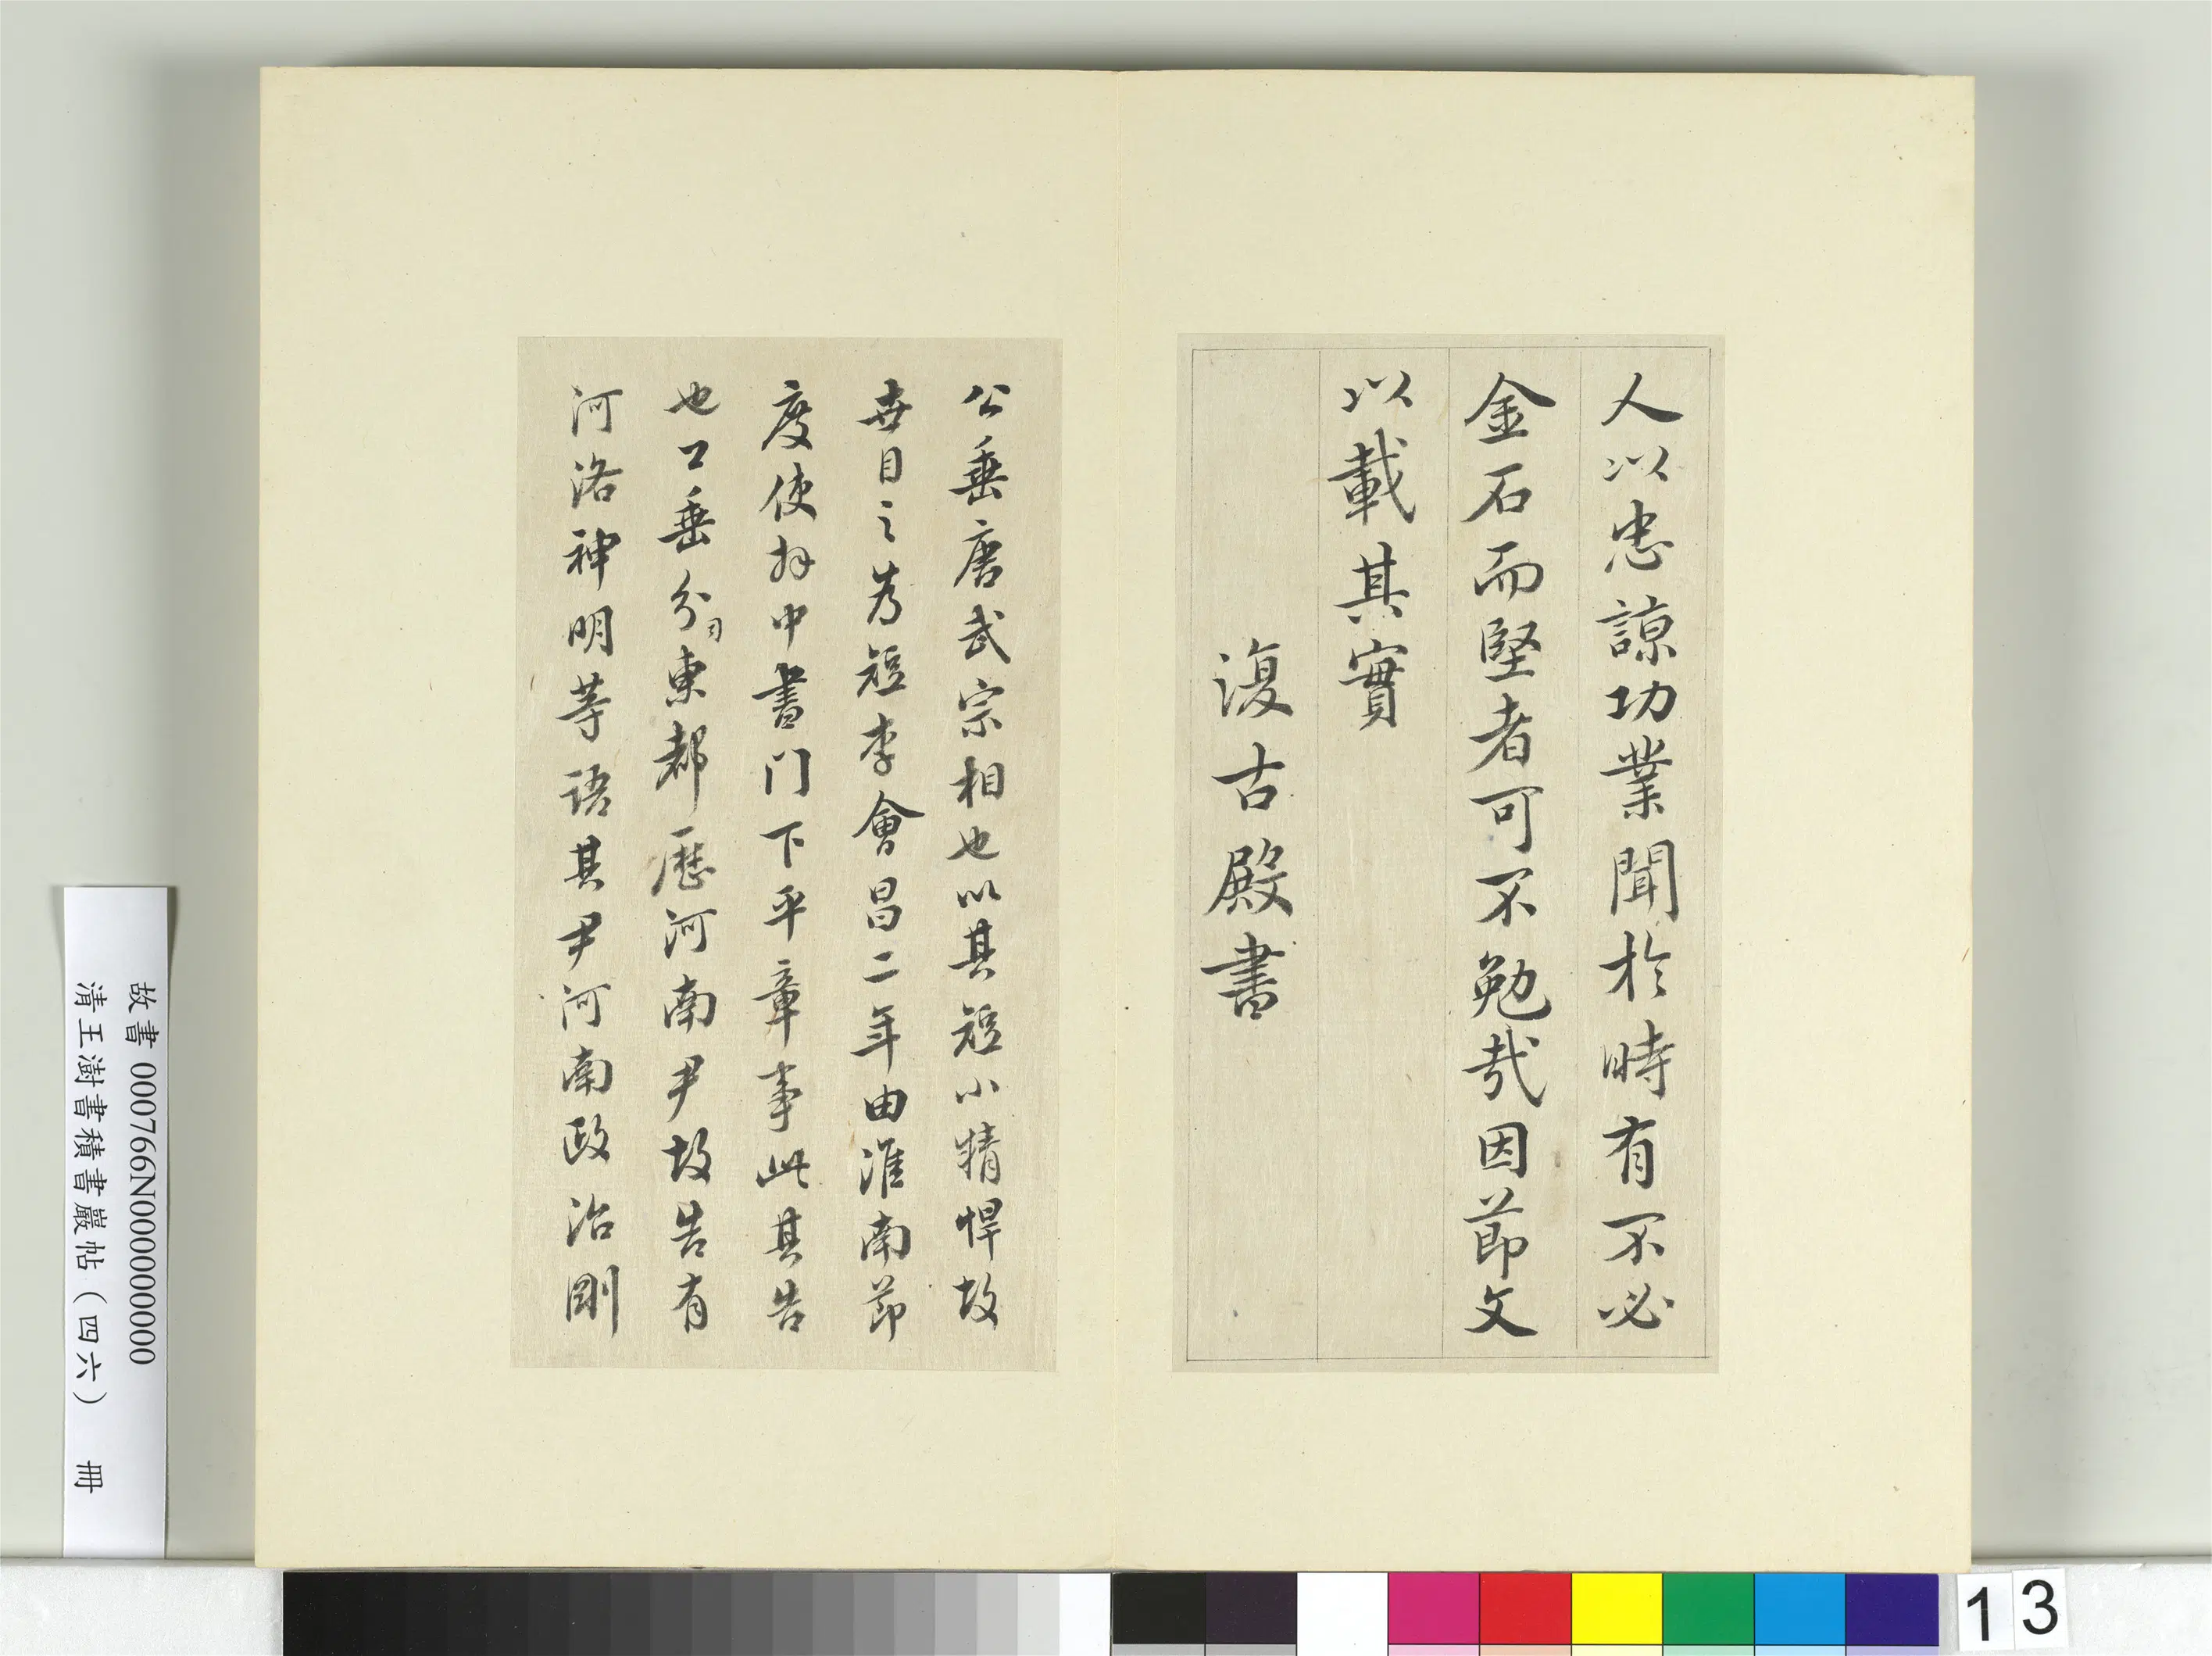 人以忠諒功業聞於時有不必
金石而堅者可不勉哉因節文
以載其實
復古殿書
公垂唐武宗相也以其短小精悍故
世目之為短李會昌二年由淮南節
度使拜中書门下平章事此其告
也公垂分司東都歷河南尹故告有
河洛神明等語其尹河南政治剛
故書 000766N000000000
清王澍書積書巖帖（四六） 冊
13